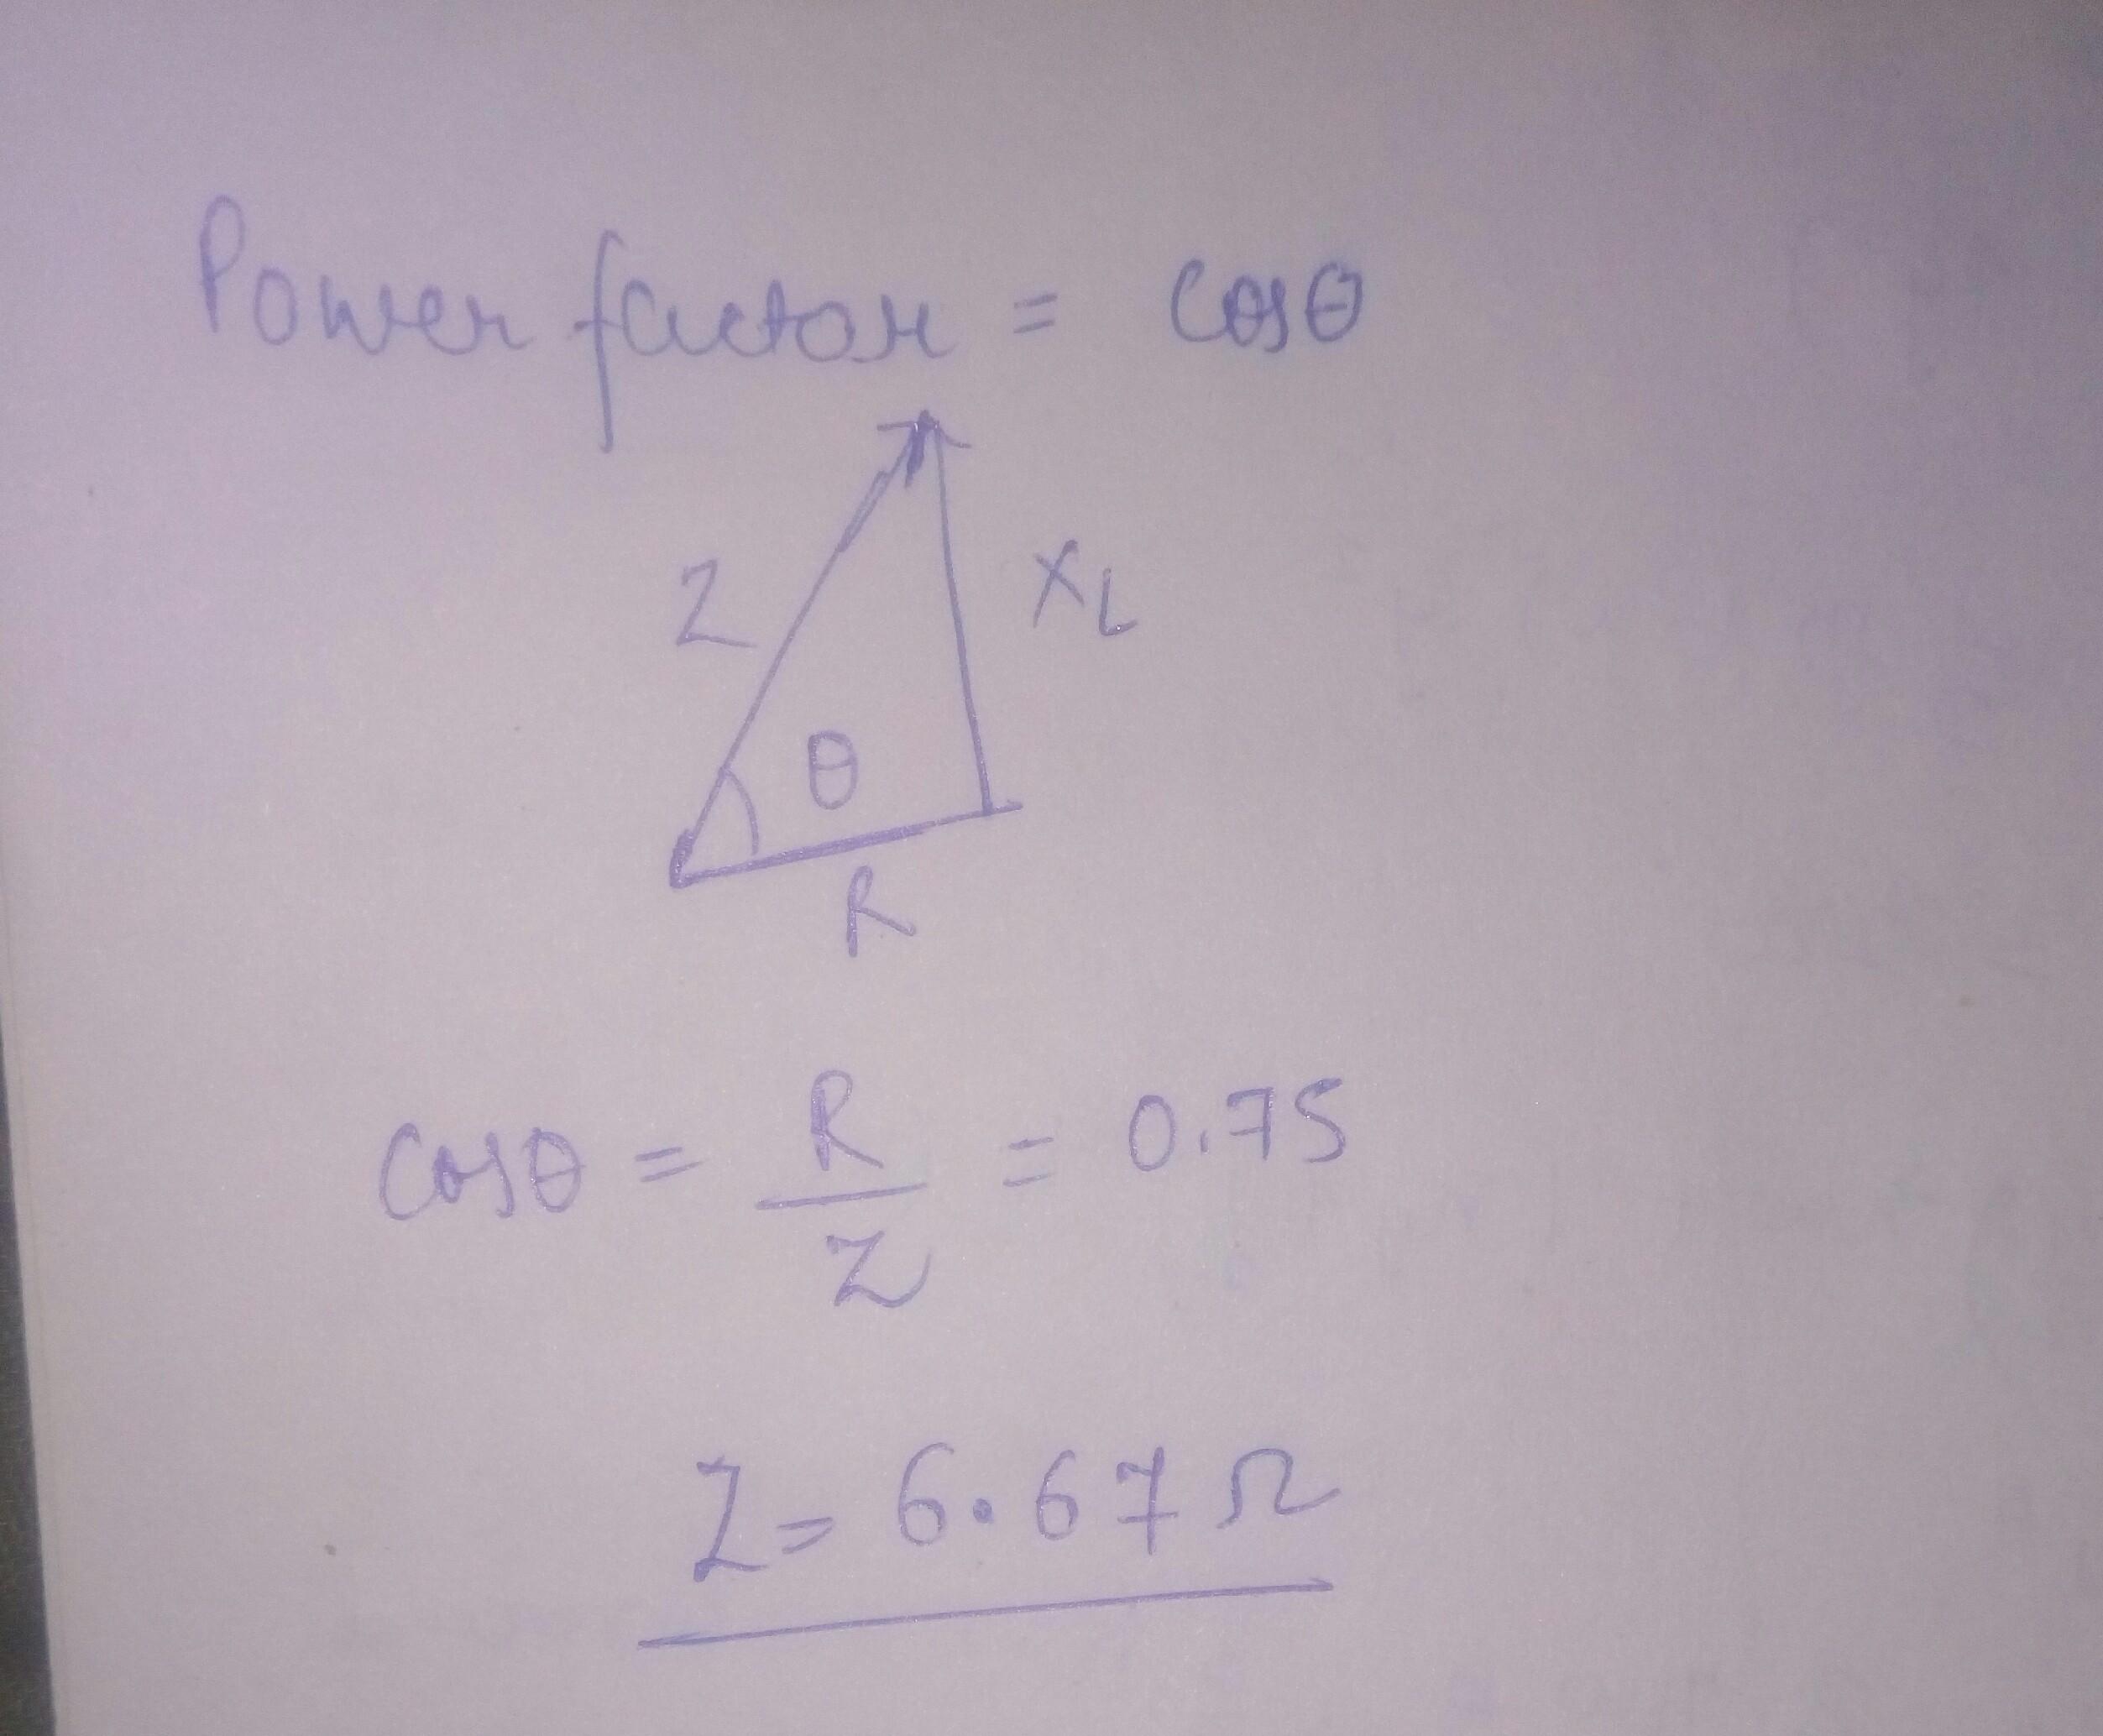 Power factor = Cosθ
Z
XL
θ
R
Cosθ = R/Z = 0.75
Z = 6.67 Ω